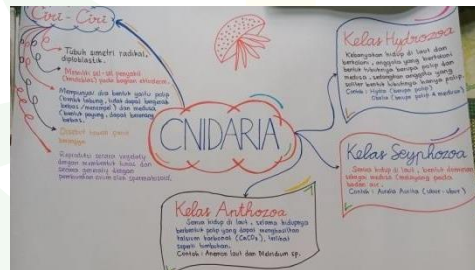 Ciri - Ciri
Tubuh simetri radikal,
diploblastik.
Memiliki sel-sel penyengat
(knidosit) pada bagian ektoderm.
Mempunyai dua bentuk yaitu polip
(bentuk tabung, tidak dapat bergerak
bebas / menempel) dan medusa
(bentuk payung, dapat berenang
bebas).
Disebut hewan
berongga
Reproduksi secara vegetatif
dengan membentuk tunas dan
secara generatif dengan
pembentukan ovum atau spermatozoid.
CNIDARIA
Kelas Hydrozoa
Kebanyakan hidup di laut dan
berkoloni, anggota yang berkoloni
bentuk tubuhnya berupa polip dan
medusa, sedangkan anggota yang
soliter bentuk tubuhnya hanya polip.
Contoh : Hydra (berupa polip)
Obelia (berupa polip & medusa)
Kelas Scyphozoa
Semua hidup di laut, bentuk dominan
sebagai medusa (melayang pada
badan air.
Contoh : Aurelia Aurita (ubur-ubur)
Kelas Anthozoa
Semua hidup di laut, selama hidupnya
berbentuk polip yang dapat menghasilkan
kalsium karbonat (CaCO3), terlihat
seperti tumbuhan.
Contoh : Anemon laut dan Metridium sp.